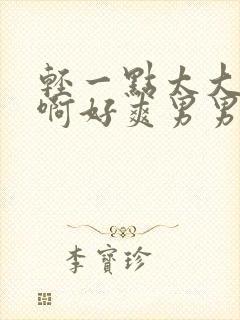 輕一點太大
啊好爽男男
李寶珍